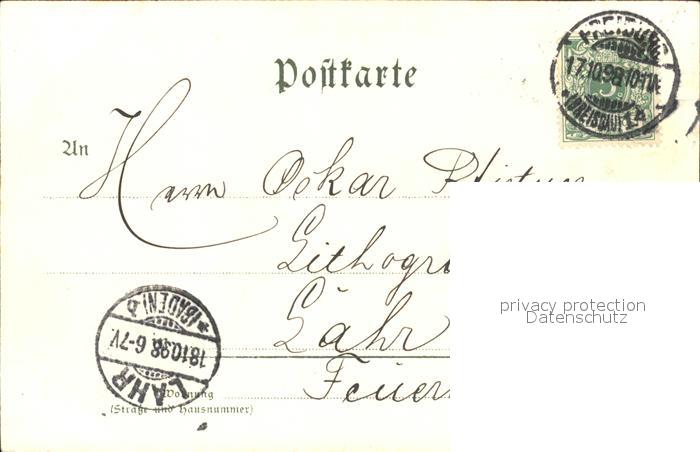 Postkarte
FREIBURG
17.10.98 10-11V.
(BREISGAU) 1A
An
Herrn Oskar
Lithogr
Lahr
Feuer
LAHR
18.10.98.6-7V.
(BADEN) b
Wohnung
(Straße und Hausnummer)
privacy protection
Datenschutz